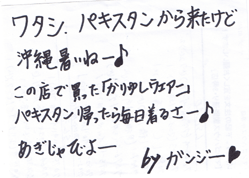 ワタシ、パキスタンから来たけど
沖縄暑いねー♪
この店で買った「かりゆしウェアー」
パキスタン帰ったら毎日着るさー♪
めぎじゃびよー
by ガンジー♥